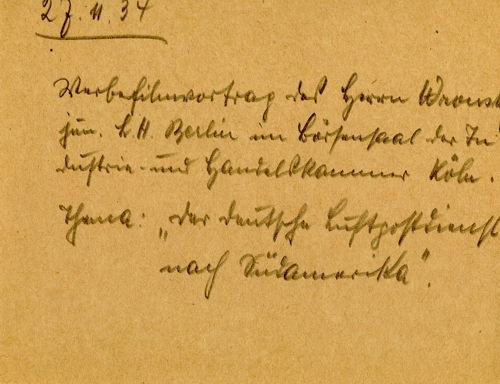 27.11.34
Werbefilmvortrag des Herrn
jun. Berlin im Börsensaal der In
dustrie- und Handelskammer Köln.
Thema: „Der deutsche Luftpostdienst
nach Südamerika".